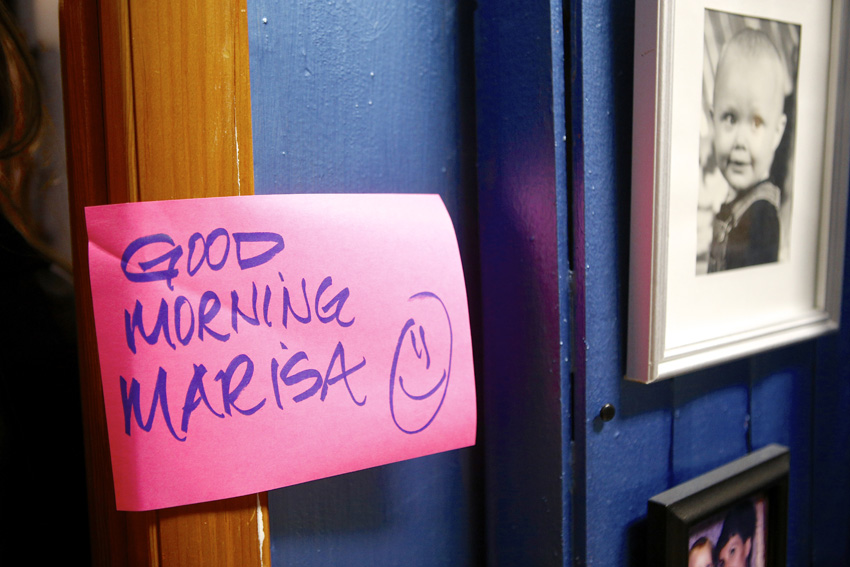 GOOD
MORNING
MARISA